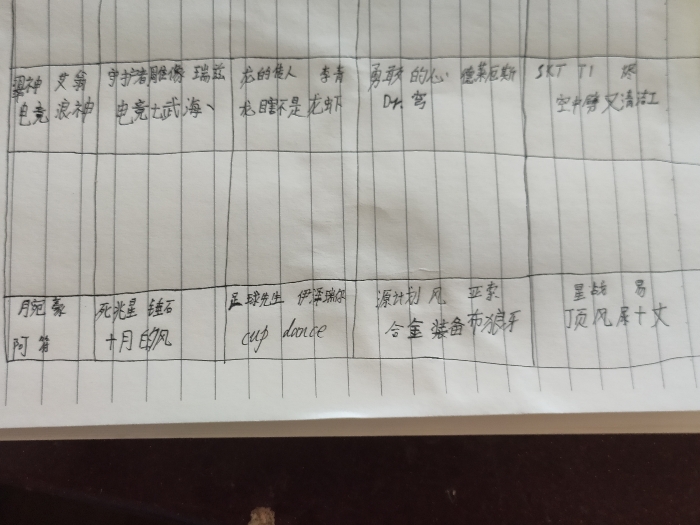 艾翁
电竞 浪神
守护者雕像 瑞兹
电竞士武海丶
龙的传人 李青
龙瞎不是龙虾
勇敢的心 德莱厄斯
Dr. 弯
SKT T1
空中劈叉清洁工
豪
阿
死兆星 锤石
十月的风
足球先生 伊泽瑞尔
cup
源计划 风 亚索
合金装备布狼牙
星战 易
顶风尿十丈